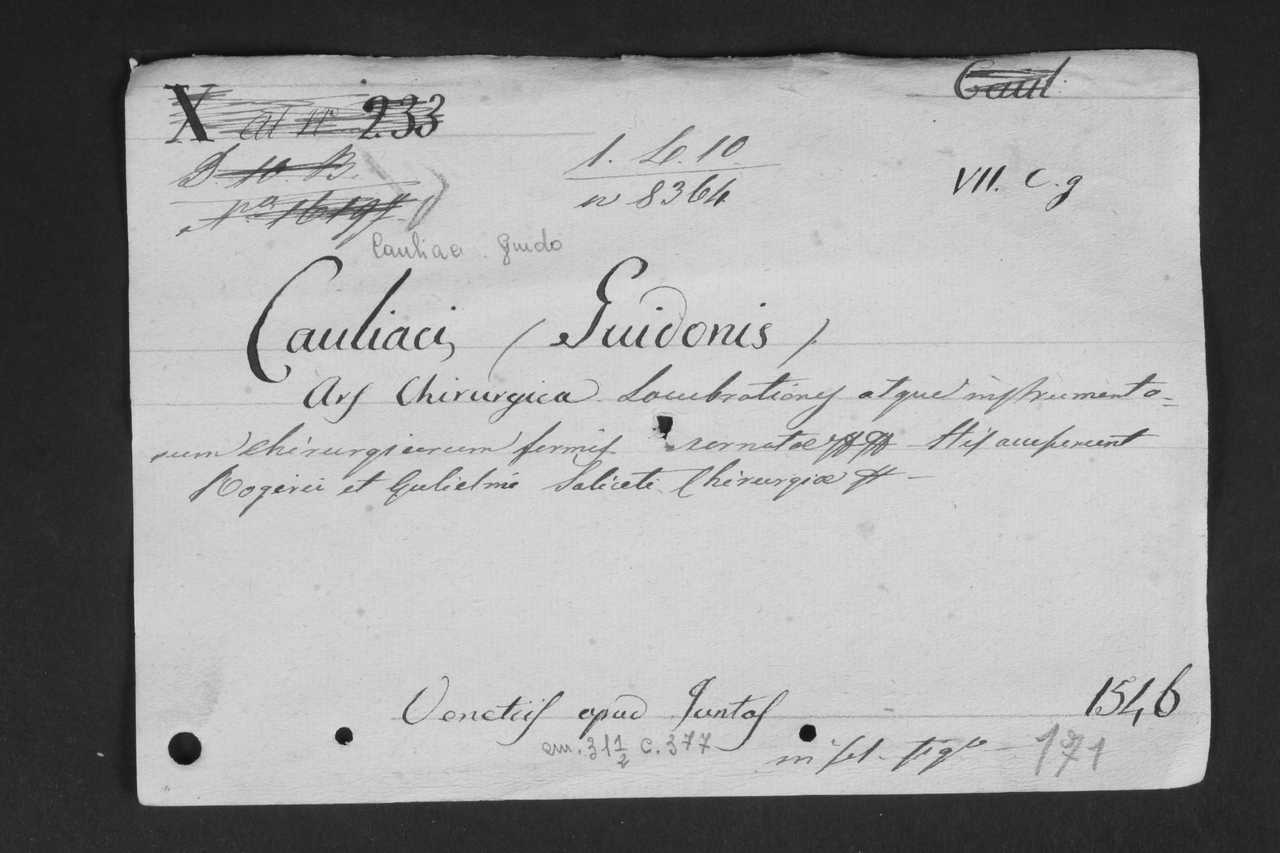 X cl nº 233
Caul
D. 10. B.
1. L. 10.
nº 8364
VII. C. g
Nº 1619
Cauliaci. Guido
Cauliaci, (Guidonis).
Ars Chirurgica. Locubrationes atque instrumento=
rum chirurgicorum formis ornatae His accesserunt
Rogerii et Gulielmi Saliceti Chirurgiae
Venetiis apud Juntas
1546
cm. 31 1/2 C. 377
in fol. figto
171